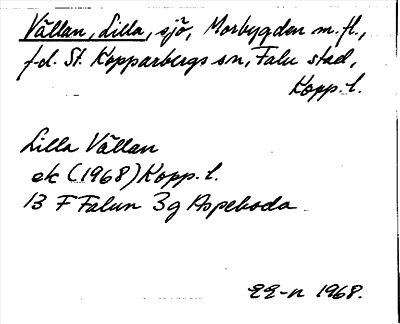 Vällan, Lilla, sjö, Morbygden m. fl.,
f.d. St. Kopparbergs sn, Falu stad,
Kopp. l.
Lilla Vällan
ek (1968) Kopp. l.
13 F Falun 3g Aspeboda
EE-n 1968.